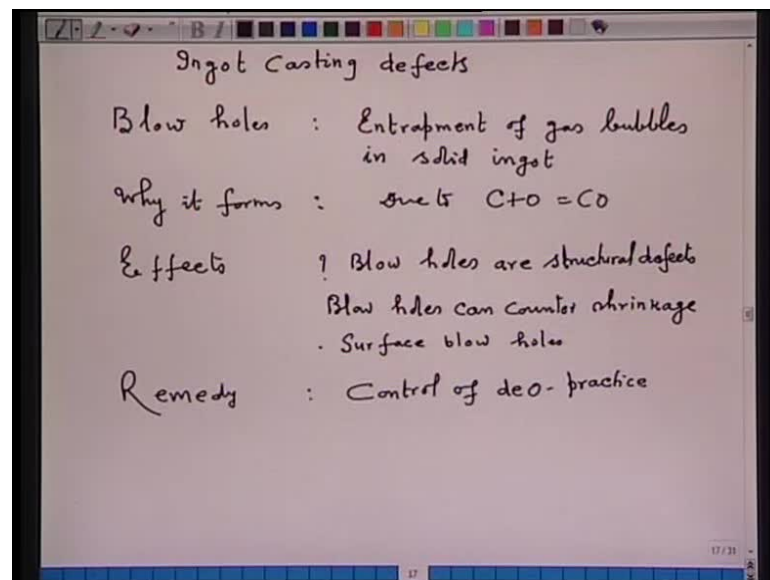 Ingot Casting defects
Blow holes : Entrapment of gas bubbles
in solid ingot
Why it forms : due to C+O = CO
Effects : Blow holes are structural defects
Blow holes can counter shrinkage
. Surface blow holes
Remedy : Control of deo- practice
17/31
17